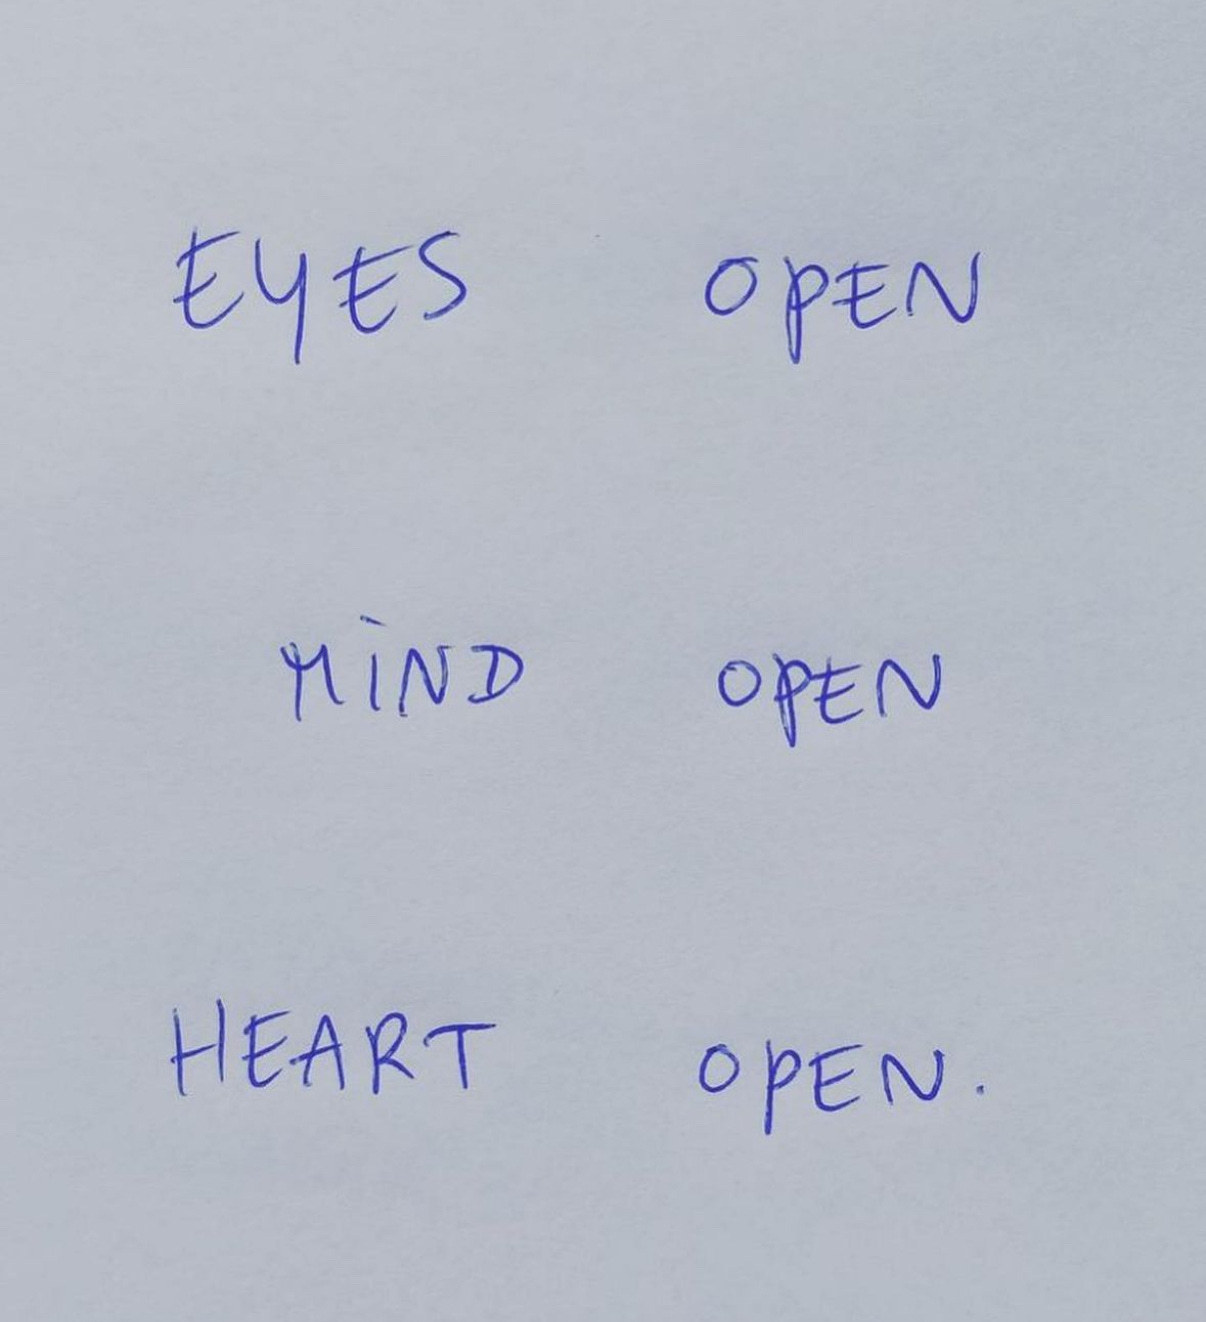 EYES OPEN
MIND OPEN
HEART OPEN.